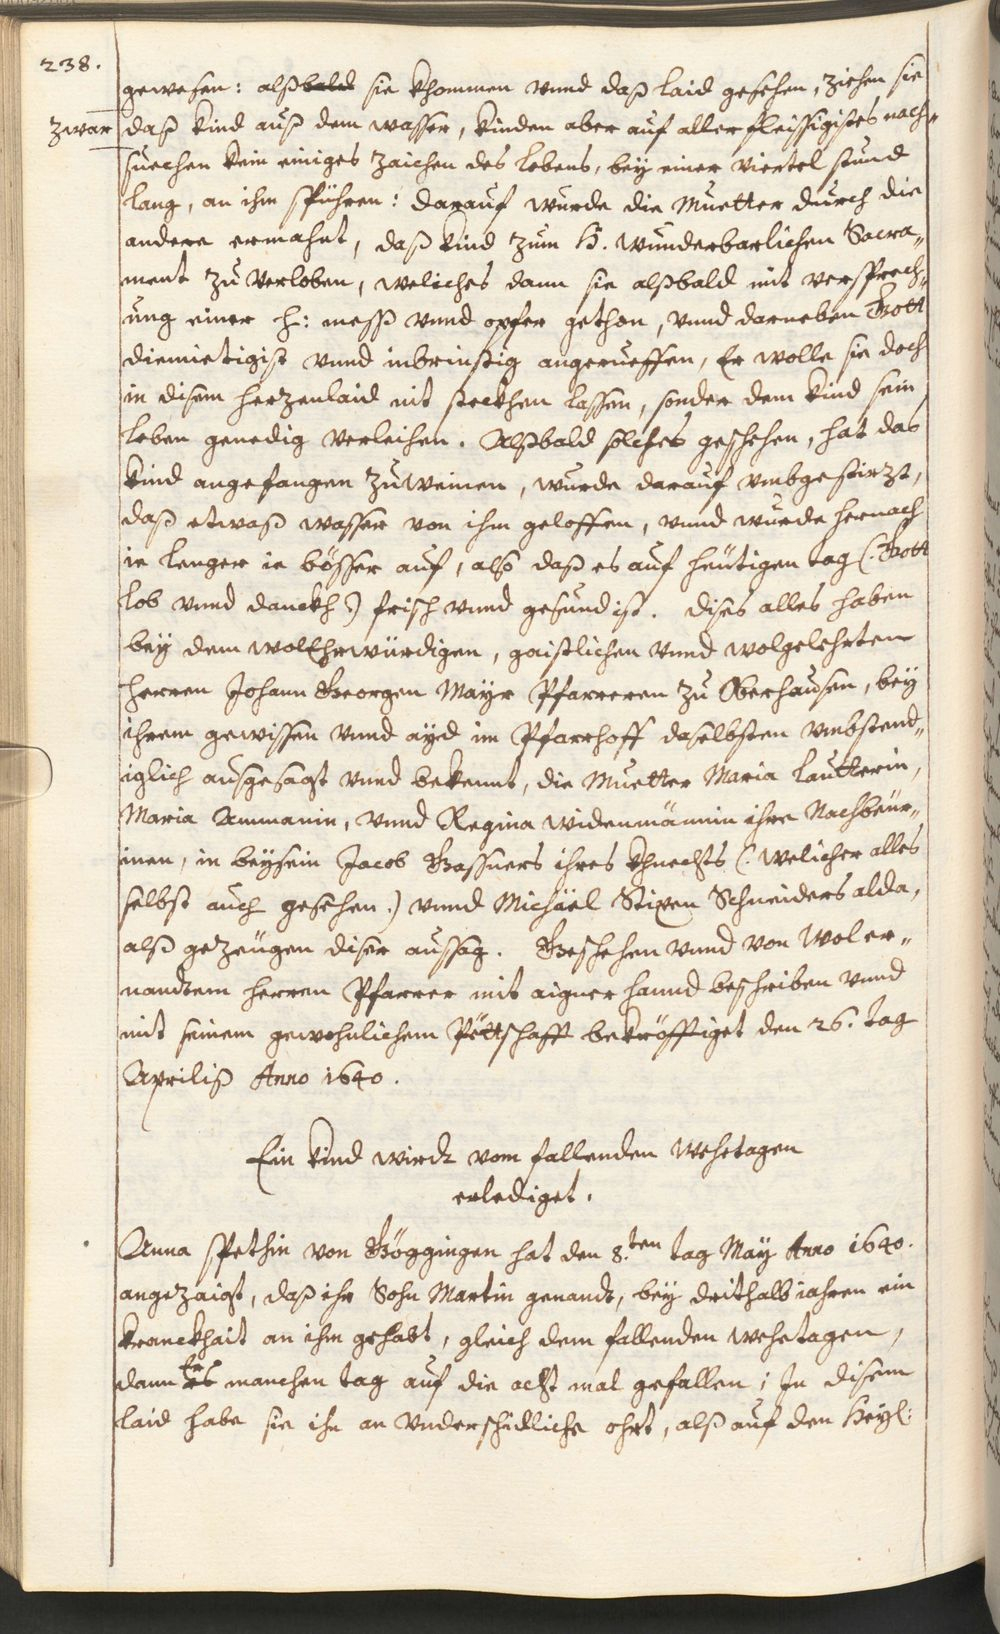 238.
gewesen: alßbald sie khommen vnnd daß laid gesehen, ziehen sie
zwar daß kind auß dem wasser, kinden aber auf allerfleissigistes nach-
suechen kein einiges zaichen des lebens, bey einer viertel stund
lang, an ihm spühren: darauf wurde die Muetter durch die
andere ermahnt, daß kind zum H. wunderbarlichen Sacra-
ment zu verloben, weliches dann sie alßbald mit versprech-
ung einer h: mess vnnd opfer gethon, vnnd darneben Gott
diemietigist vnnd inbrinstig angerueffen, Er wolle sie doch
in disem hertzenlaid nit steckhen lassen, sonder dem kind sein
leben genedig verleihen. Alßbald solches geschehen, hat das
kind angefangen zu weinen, wurde darauf vmbgestirzt,
daß etwaß wasser von ihm geloffen, vnnd wurde hernach
ie lenger ie bösser auf, also daß es auf heütigen tag (: Gott
lob vnnd danckh :) frisch vnnd gesund ist. dises alles haben
bey dem wolEhrwürdigen, gaistlichen vnnd wolgelehrten
herren Johann Georgen Mayr Pfarreren zu Oberhausen, bey
ihrem gewissen vnnd ayd im Pfarrhoff daselbsten vmbstend-
iglich ausgesagt vnnd bekennt, die Muetter Maria Lautterin,
Maria Ammanin, vnnd Regina widenmännin ihre Nachbeür-
inen, in beysein Jacob Gassners ihres khnechts (: welicher alles
selbst auch gesehen :) vnnd Michäel Stixen Schneiders alda,
alß gezeügen diser aussag. Geschehen vnnd von wol er-
nandtem herren Pfarrer mit aigner hannd beschriben vnnd
mit seinem gewohnlichem Pöttschafft bekröfftiget den 26. tag
Apriliß Anno 1640.
Ein kind wirdt vom fallenden wehetagen
erlediget.
Anna Spethin von Göggingen hat den 8.ten tag May Anno 1640.
angezaigt, daß ihr Sohn Martin genandt, bey drithalb iahren ein
kranckhait an ihm gehabt, gleich dem fallenden wehetagen,
dann Er manchen tag auf die acht mal gefallen; In disem
laid habe sie ihn an vnderschidliche ohrt, alß auf den Heyl: